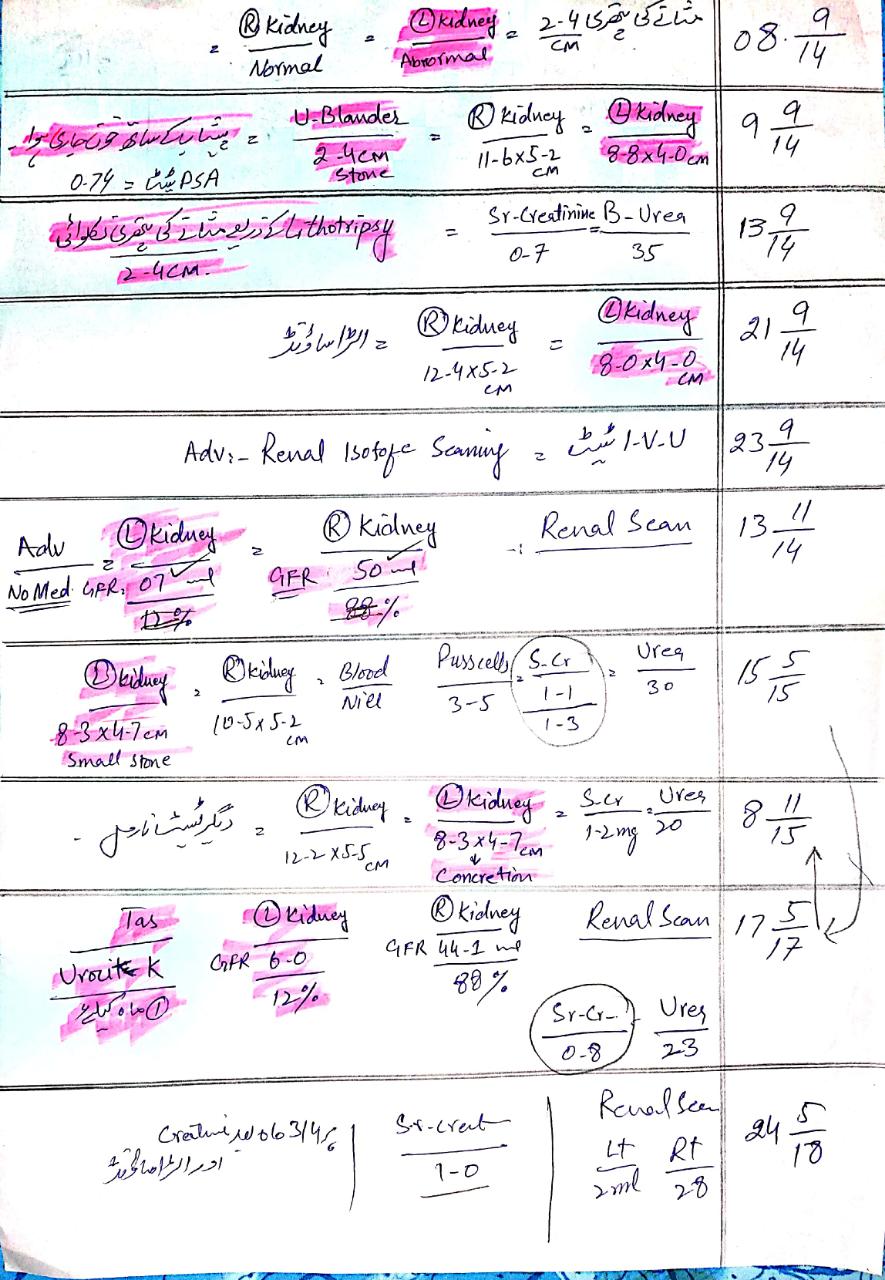 08. 9/14 مثانے کی پتھری 2-4 CM = Ⓛ Kidney Abnormal = Ⓡ Kidney Normal =
9 9/14 Ⓛ Kidney 8-8x4-0cm = Ⓡ Kidney 11-6x5-2 cm = U-Blander 2-4cm Stone = پیشاب کے ساتھ خون جاری ہوا۔
PSA ٹیسٹ = 0-74
13 9/14 B-Urea 35 = Sr-Creatinine 0-7 = Lithotripsy کے ذریعہ مثانے کی پتھری نکلوائی
2-4cm.
21 9/14 Ⓛ Kidney 8-0x4-0 CM = Ⓡ Kidney 12-4x5-2 CM = الٹراساؤنڈ
23 9/14 I-V-U ٹیسٹ = Adv:- Renal Isotope Scaning
13 11/14 Renal Scan :- Ⓡ Kidney GFR 50 ml 88% = Ⓛ Kidney GFR: 07 ml 12% = Adv No Med
15 5/15 Urea 30 = S-Cr 1-1 1-3 = Pusscells 3-5 Blood Nill = Ⓡ Kidney 10-5x5-2 cm = Ⓛ Kidney 8-3x4-7cm Small stone
8 11/15 Urea 20 = S-cr 1-2mg = Ⓛ Kidney 8-3x4-7cm ↓ Concretion = Ⓡ Kidney 12-2x5-5 cm = دیگر ٹیسٹ نارمل -
17 5/17 Renal Scan Ⓡ Kidney GFR 44-1 ml 88% Ⓛ Kidney GFR 6-0 12% Tas Urocit K ① ماہ کیلئے
Urea 23 Sr-Cr- 0-8
24 5/18 Renal Scan Rt 28 Lt 2ml
Sr-creat 1-0
3/4 ماہ بعد
اور الٹراساؤنڈ